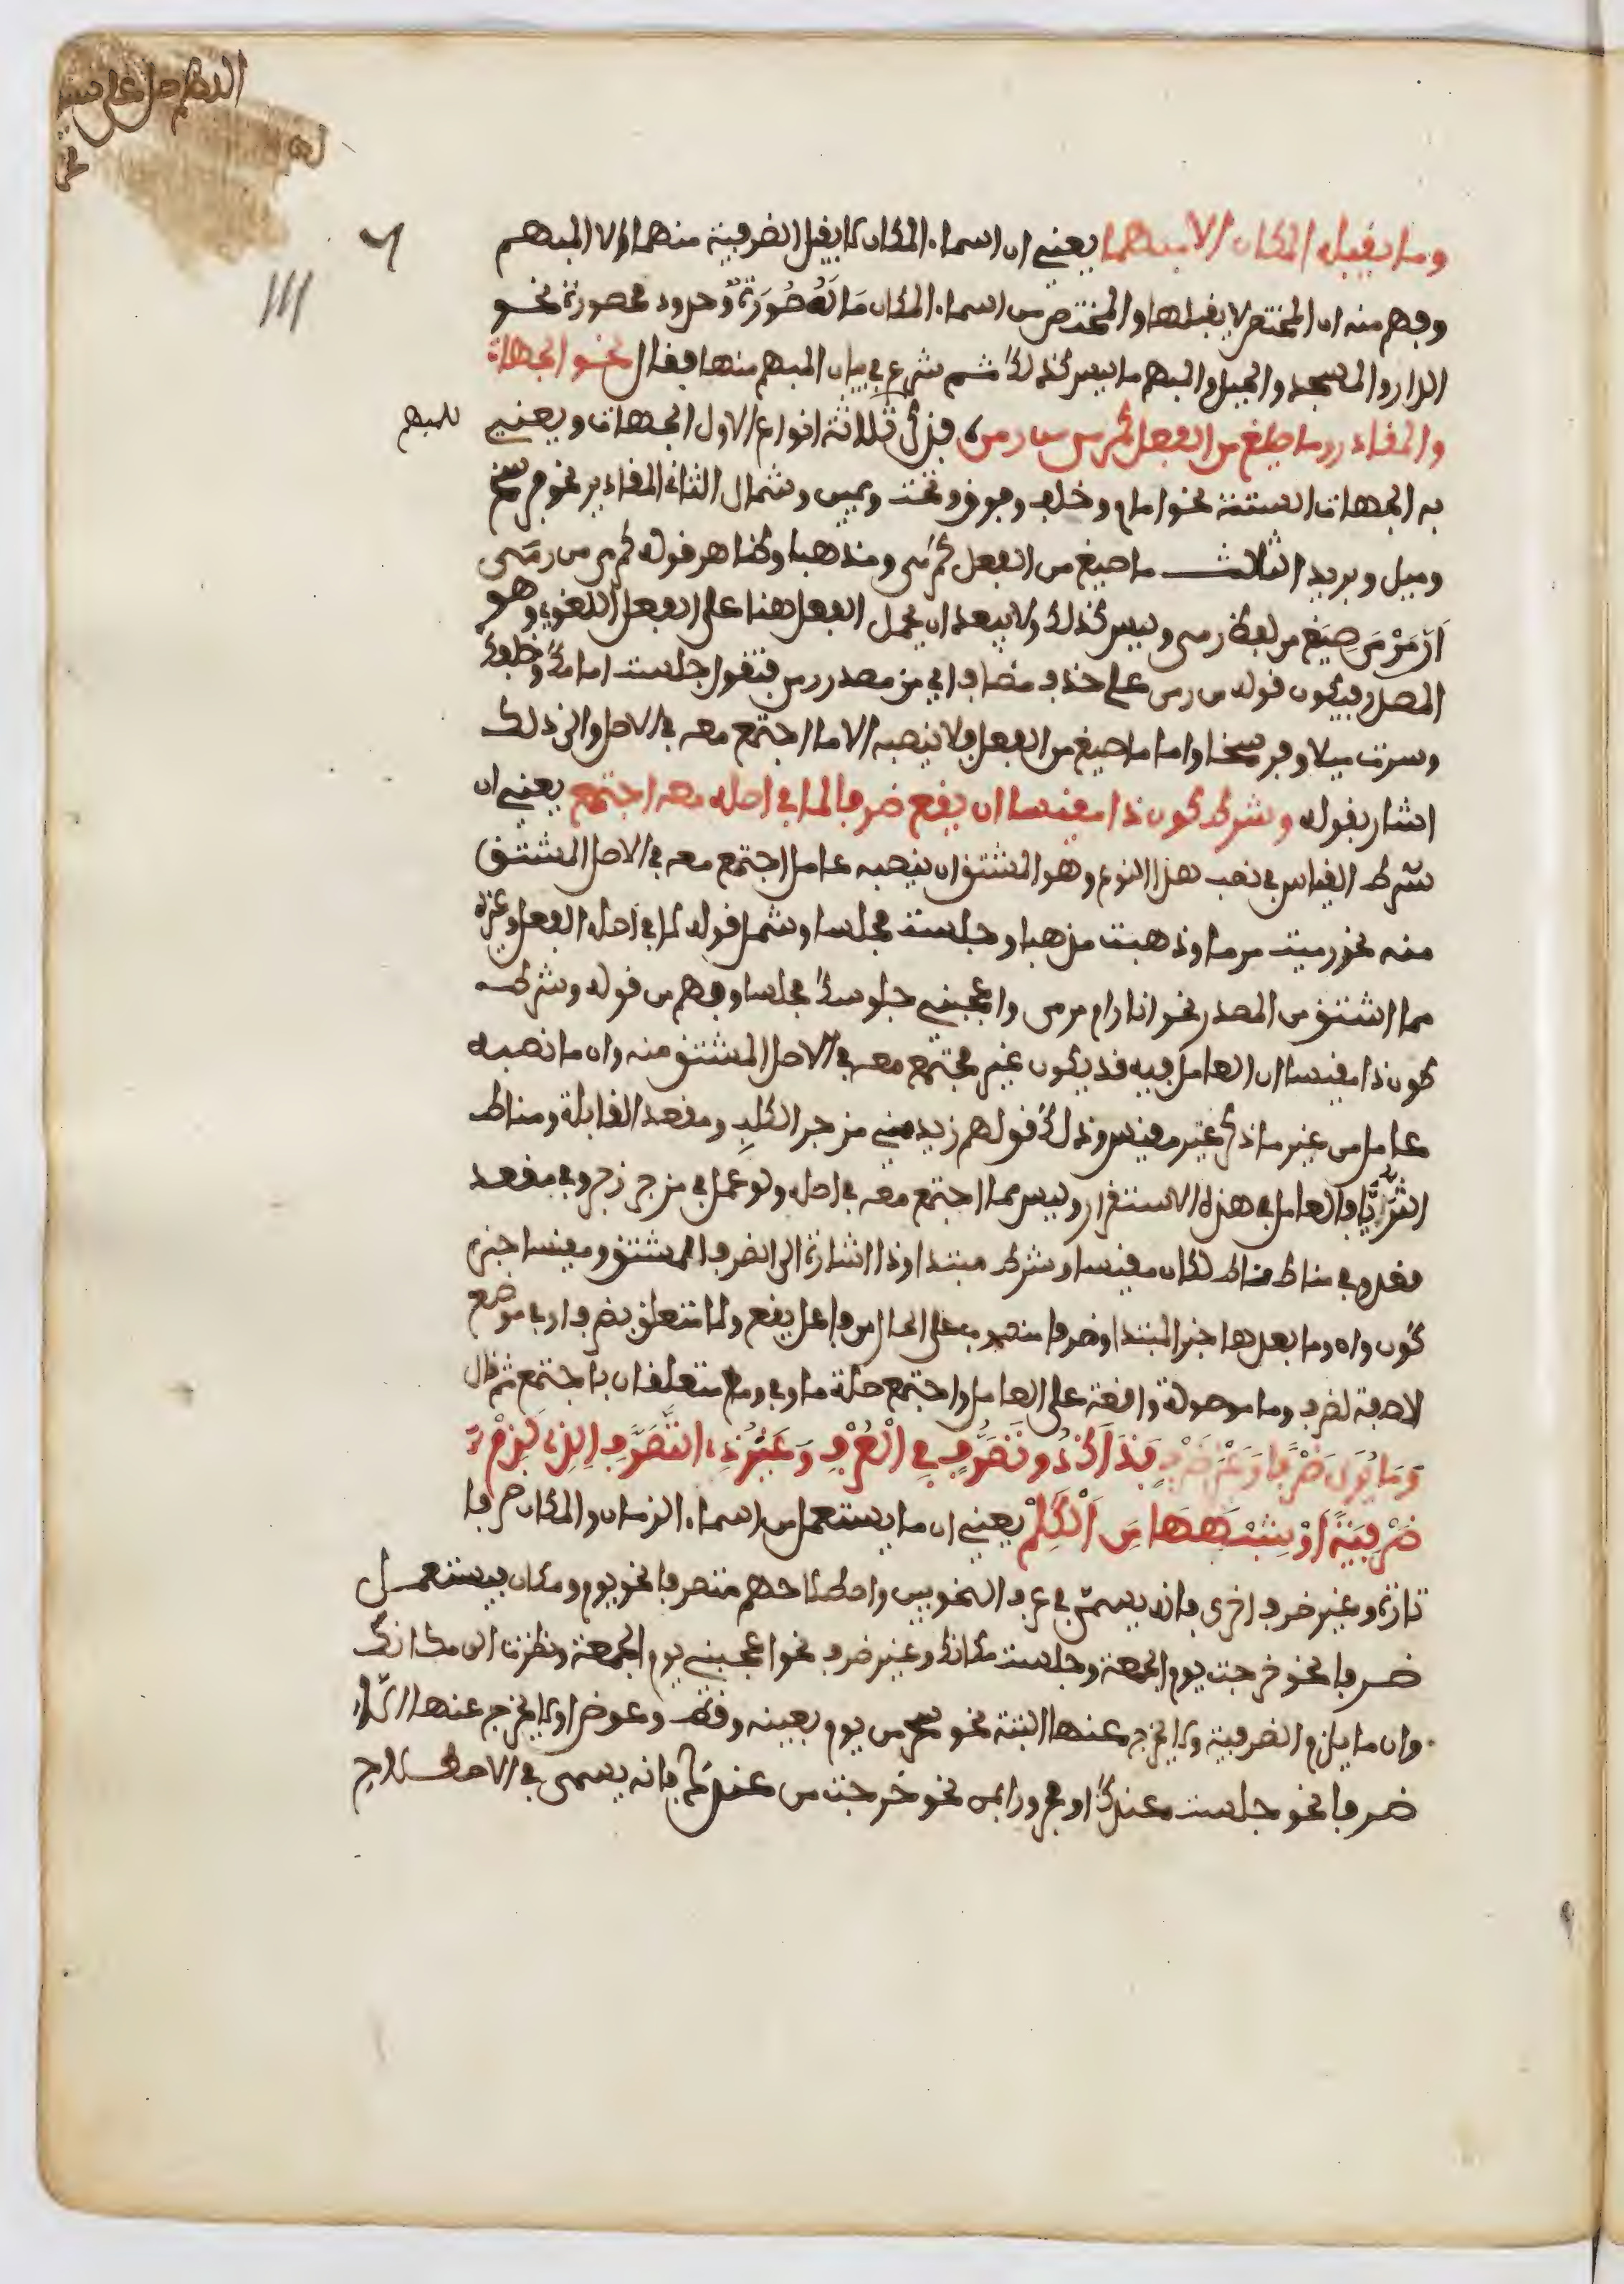 اللهم صل على
وما يقبله المكان الا مبهما يعني ان اسماء المكان لا يقبل الضرفية منهما الا المبهم
وفهم منه ان المختص لا يقبلها والمختص من اسماء المكان مَا لَهُ صُورَةٌ وحدود محصورة نحو
الدار والمسجد والجبل والمبهم ما ليس كذلك ثم شرع في بيان المبهم منها فقال نحو الجهات
والمقادير وما صيغ من الفعل كمرمى من رمى فذكر ثلاثة انواع الاول الجهات ويعني
للمبهم
به الجهات الستة نحو امام وخلف وفوق وتحت ويمين وشمال الثاني المقادير نحو فرسخ
وميل وبريد الثالث ما صيغ من الفعل كمرمى ومذهبا وظاهر قوله كمرمى من رمى
ان مَرْمَى صيغ من لفظ رمى وليس كذلك ولا يبعد ان يحمل الفعل هنا على الفعل اللغوي وهو
المصدر فيكون قوله من رمى على حذف مضاف اي من مصدر رمى فتقول جلست امامك وخلفك
وسرت ميلا وفرسخا واما ما صيغ من الفعل فلا ينصبه الا ما اجتمع معه في الاصل والى ذلك
اشار بقوله وشرط كون ذا مقيسا ان يقع ضرفا لما في اصله معه اجتمع يعني ان
شرط القياس في نصب هذا النوع وهو المشتق ان ينصبه عامل اجتمع معه في الاصل المشتق
منه نحو رميت مرمى وذهبت مذهبا وجلست مجلسا وشمل قوله لما في اصله الفعل وغيره
مما اشتق من المصدر نحو انا رام مرمى واعجبني جلوسك مجلسا وفهم من قوله وشرط
كون ذا مقيسا ان العامل فيه قد يكون غير مجتمع معه في الاصل المشتق منه وان ما نصبه
عامل من غير ما ذكر غير مقيس وذلك قولهم زيد مني مزجر الكلب ومقعد القابلة ومناط
الثريا فالعامل في هذه الاستقرار وليس مما اجتمع معه في اصله ولو عمل في مزجر زجر وفي مقعد
قعد وفي مناط ناط لكان مقيسا وشرط مبتدا وذا اشارة الى الضرف المشتق ومقيسا خبر
كون وان وما بعدها خبر المبتدا وضرفا منصوب على الحال من فاعل يقع ولما متعلق بضرفا او في موضع
الصفة لضرف وما موصولة واقعة على العامل واجتمع صلة ما وفي ومع متعلقان باجتمع ثم قال
وَمَا يُرَى ضَرْفًا وَغَيْرَ ضَرْفِ فَذَاكَ ذُو تَصَرُّفٍ فِي الْعُرْفِ وَغَيْرُ ذِي التَّصَرُّفِ الَّذِي لَزِمْ
ضَرْفِيَّةً أَوْ شِبْهَهَا مِنَ الْكَلِمْ يعني ان ما يستعمل من اسماء الزمان والمكان ضرفا
تارة وغير ضرف اخرى فانه يسمى في عرف النحويين واصطلاحهم متصرفا نحو يوم ومكان يستعمل
ضرفا نحو خرجت يوم الجمعة وجلست مكانك وغير ضرف نحو اعجبني يوم الجمعة ونظرت الى مكانك
وان ما يلزم الضرفية ولا يخرج عنها البتة نحو سحر من يوم بعينه وقط وعوض او لا يخرج عنها الا
ضرفا نحو جلست عندك او مجرورا بمن نحو خرجت من عندك فانه يسمى في الاصطلاح